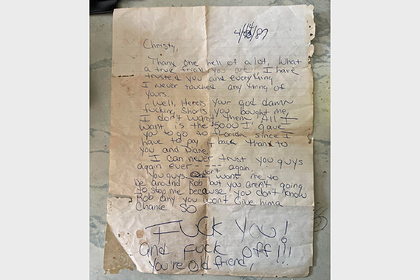 4/16/87
Christy,
Thank one hell of a lot. What
a true friend you are. I have
trusted you and everything.
I never touched any thing of
yours.
Well, Here's your God damn
fucking shorts you bought me,
I don't want them. All I
want is the $5000 I gave
you to go to Florida since I
have to pay back thanks to
you and Diane.
I can never trust you guys
again ever again.
You guys didn't want me to
be around Rob but you aren't going
to stop me because you don't know
Rob and you won't Give him a
Chance SO
FUCK YOU!
and FUCK OFF!!!
You're Old friend,